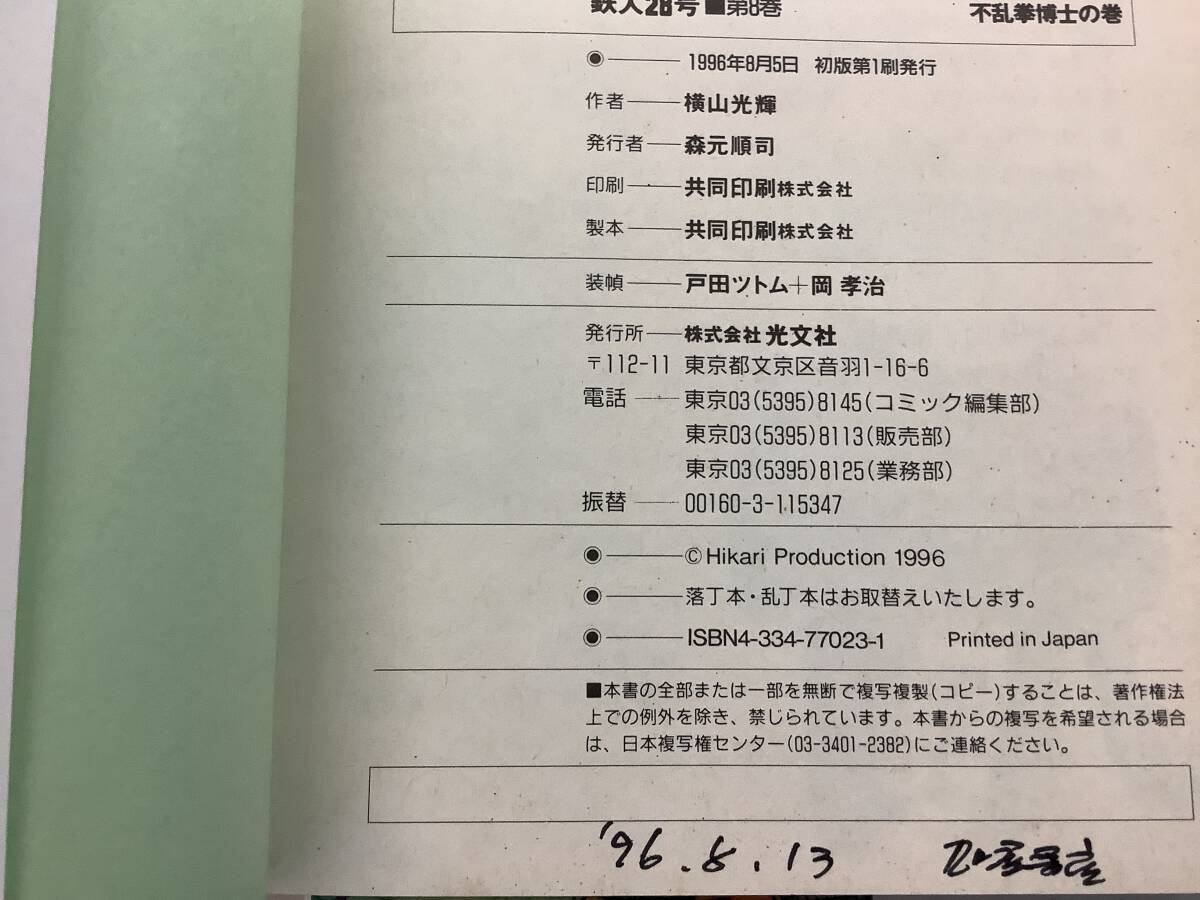 鉄人28号■第8巻 不乱拳博士の巻
◉── 1996年8月5日 初版第1刷発行
作者── 横山光輝
発行者── 森元順司
印刷── 共同印刷株式会社
製本── 共同印刷株式会社
装幀── 戸田ツトム+岡 孝治
発行所── 株式会社 光文社
〒112-11 東京都文京区音羽1-16-6
電話── 東京03(5395)8145(コミック編集部)
東京03(5395)8113(販売部)
東京03(5395)8125(業務部)
振替── 00160-3-115347
◉── ©Hikari Production 1996
◉── 落丁本・乱丁本はお取替えいたします。
◉── ISBN4-334-77023-1 Printed in Japan
■本書の全部または一部を無断で複写複製(コピー)することは、著作権法
上での例外を除き、禁じられています。本書からの複写を希望される場合
は、日本複写権センター(03-3401-2382)にご連絡ください。
'96.8.13